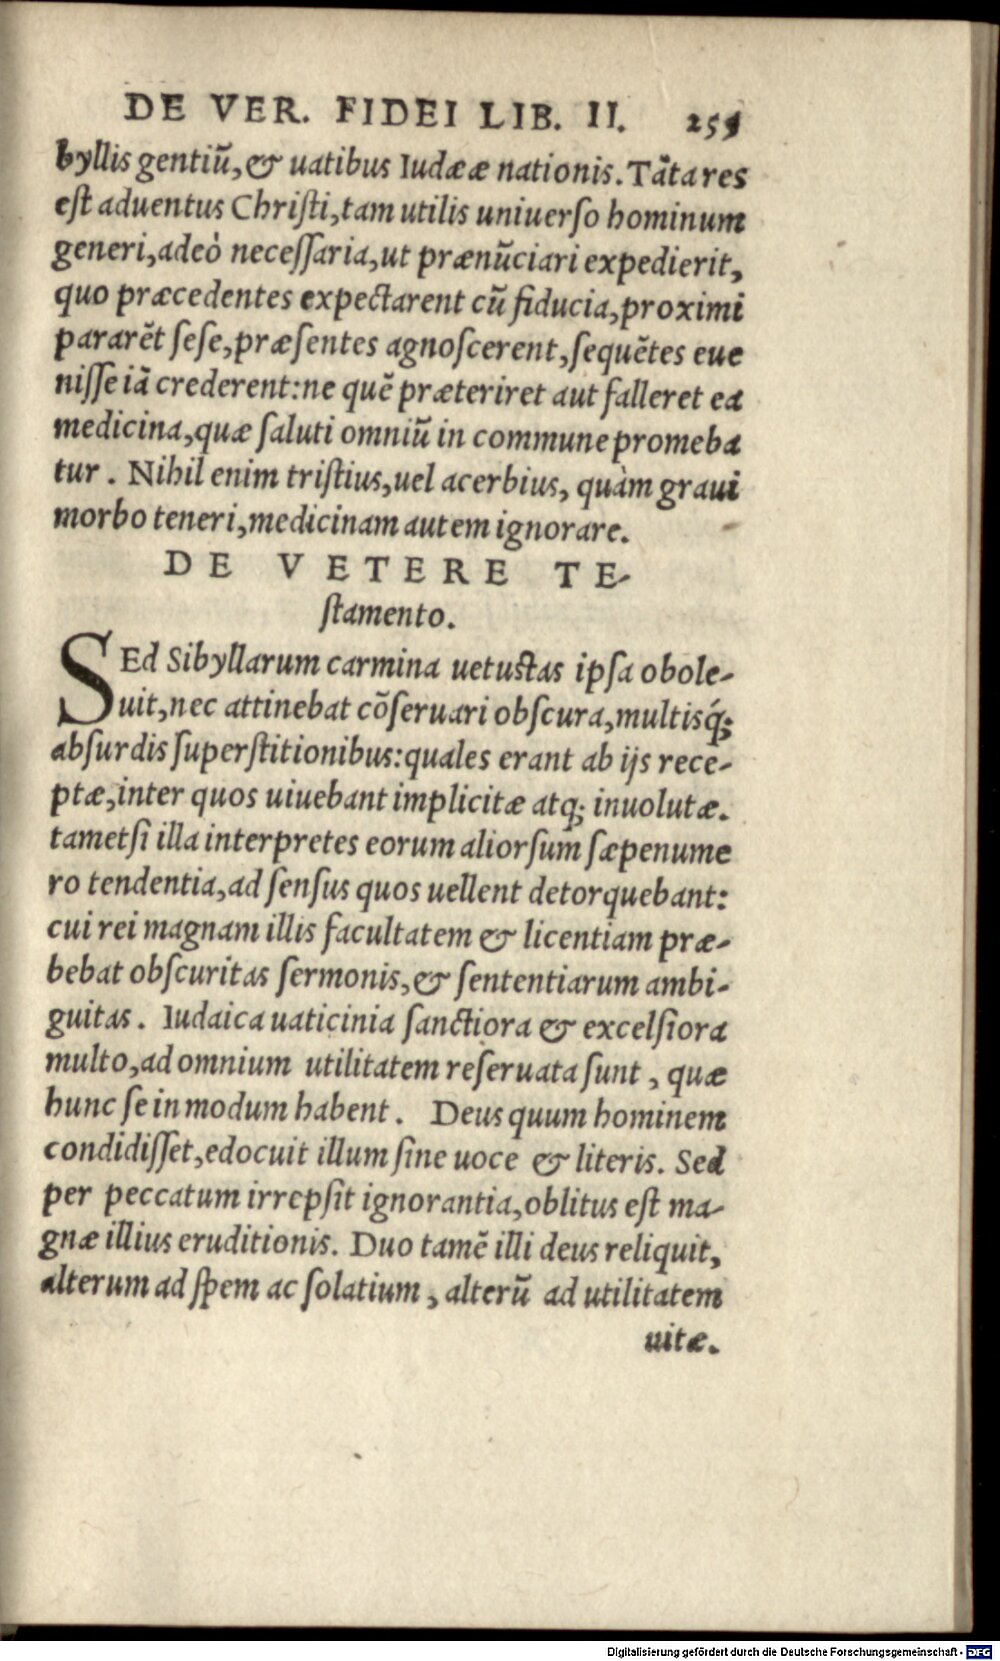 DE VER. FIDEI LIB. II. 259
byllis gentiũ,& uatibus Iudææ nationis. Tãta res
est aduentus Christi,tam utilis uniuerso hominum
generi,adeò necessaria,ut prænũciari expedierit,
quo præcedentes expectarent cũ fiducia,proximi
pararẽt sese,præsentes agnoscerent,sequẽtes eue
nisse iã crederent:ne quẽ præteriret aut falleret ea
medicina,quæ saluti omniũ in commune promeba
tur. Nihil enim tristius,uel acerbius, quàm graui
morbo teneri,medicinam autem ignorare.
DE VETERE TE-
stamento.
SEd Sibyllarum carmina uetustas ipsa obole-
uit,nec attinebat cõseruari obscura,multisq́;
absurdis superstitionibus:quales erant ab ijs rece-
ptæ,inter quos uiuebant implicitæ atq; inuolutæ.
tametsi illa interpretes eorum aliorsum sæpenume
ro tendentia,ad sensus quos uellent detorquebant:
cui rei magnam illis facultatem & licentiam præ-
bebat obscuritas sermonis,& sententiarum ambi-
guitas. Iudaica uaticinia sanctiora & excelsiora
multo,ad omnium utilitatem reseruata sunt, quæ
hunc se in modum habent. Deus quum hominem
condidisset,edocuit illum sine uoce & literis. Sed
per peccatum irrepsit ignorantia,oblitus est ma-
gnæ illius eruditionis. Duo tamẽ illi deus reliquit,
alterum ad spem ac solatium, alterũ ad utilitatem
uitæ.
Digitalisierung gefördert durch die Deutsche Forschungsgemeinschaft - DFG